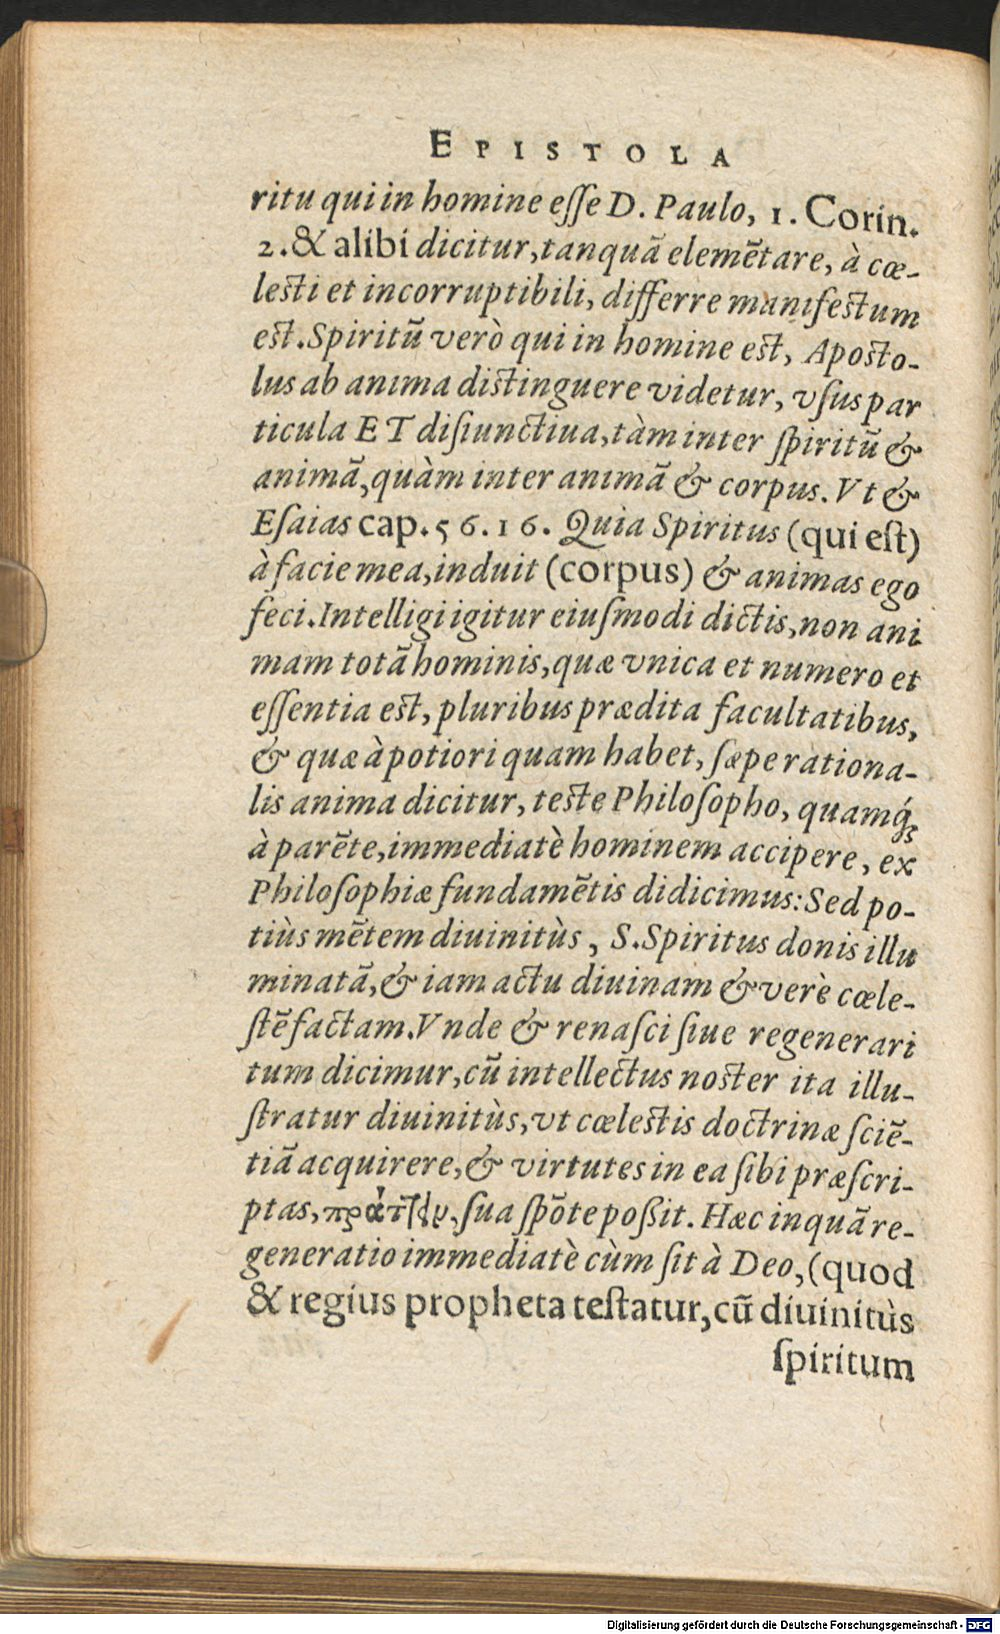 EPISTOLA
ritu qui in homine eſſe D. Paulo, 1. Corin.
2. & alibi dicitur, tanquã elemẽtare, à cœ-
leſti et incorruptibili, differre manifeſtum
eſt. Spiritũ verò qui in homine eſt, Apoſto-
lus ab anima diſtinguere videtur, vſus par
ticula ET diſiunctiua, tàm inter ſpiritũ &
animã, quàm inter animã & corpus. Vt &
Eſaias cap. 56. 16. Quia Spiritus (qui eſt)
à facie mea, induit (corpus) & animas ego
feci. Intelligi igitur eiuſmodi dictis, non ani
mam totã hominis, quæ vnica et numero et
eſſentia eſt, pluribus prædita facultatibus,
& quæ à potiori quam habet, ſæpe rationa-
lis anima dicitur, teſte Philoſopho, quamq́;
à parẽte, immediatè hominem accipere, ex
Philoſophiæ fundamẽtis didicimus: Sed po-
tiùs mẽtem diuinitùs, S. Spiritus donis illu
minatã, & iam actu diuinam & verè cœle-
ſtẽ factam. Vnde & renaſci ſiue regenerari
tum dicimur, cũ intellectus noſter ita illu-
ſtratur diuinitùs, vt cœleſtis doctrinæ ſciẽ-
tiã acquirere, & virtutes in ea ſibi præſcri-
ptas, πράττειν, ſua ſpõte poßit. Hæc inquã re-
generatio immediatè cùm ſit à Deo, (quod
& regius propheta teſtatur, cũ diuinitùs
ſpiritum
Digitalisierung gefördert durch die Deutsche Forschungsgemeinschaft - DFG